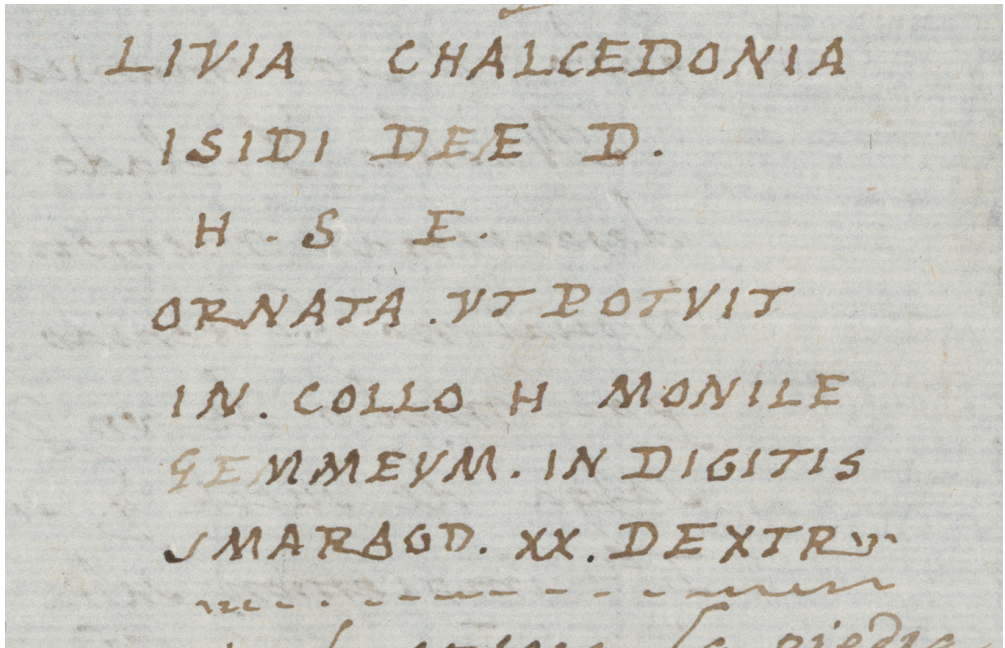 LIVIA CHALCEDONIA
ISIDI DEE D.
H . S E.
ORNATA . VT POTVIT
IN . COLLO H MONILE
GEMMEVM . IN DIGITIS
SMARAGD . XX . DEXTR
la piedra